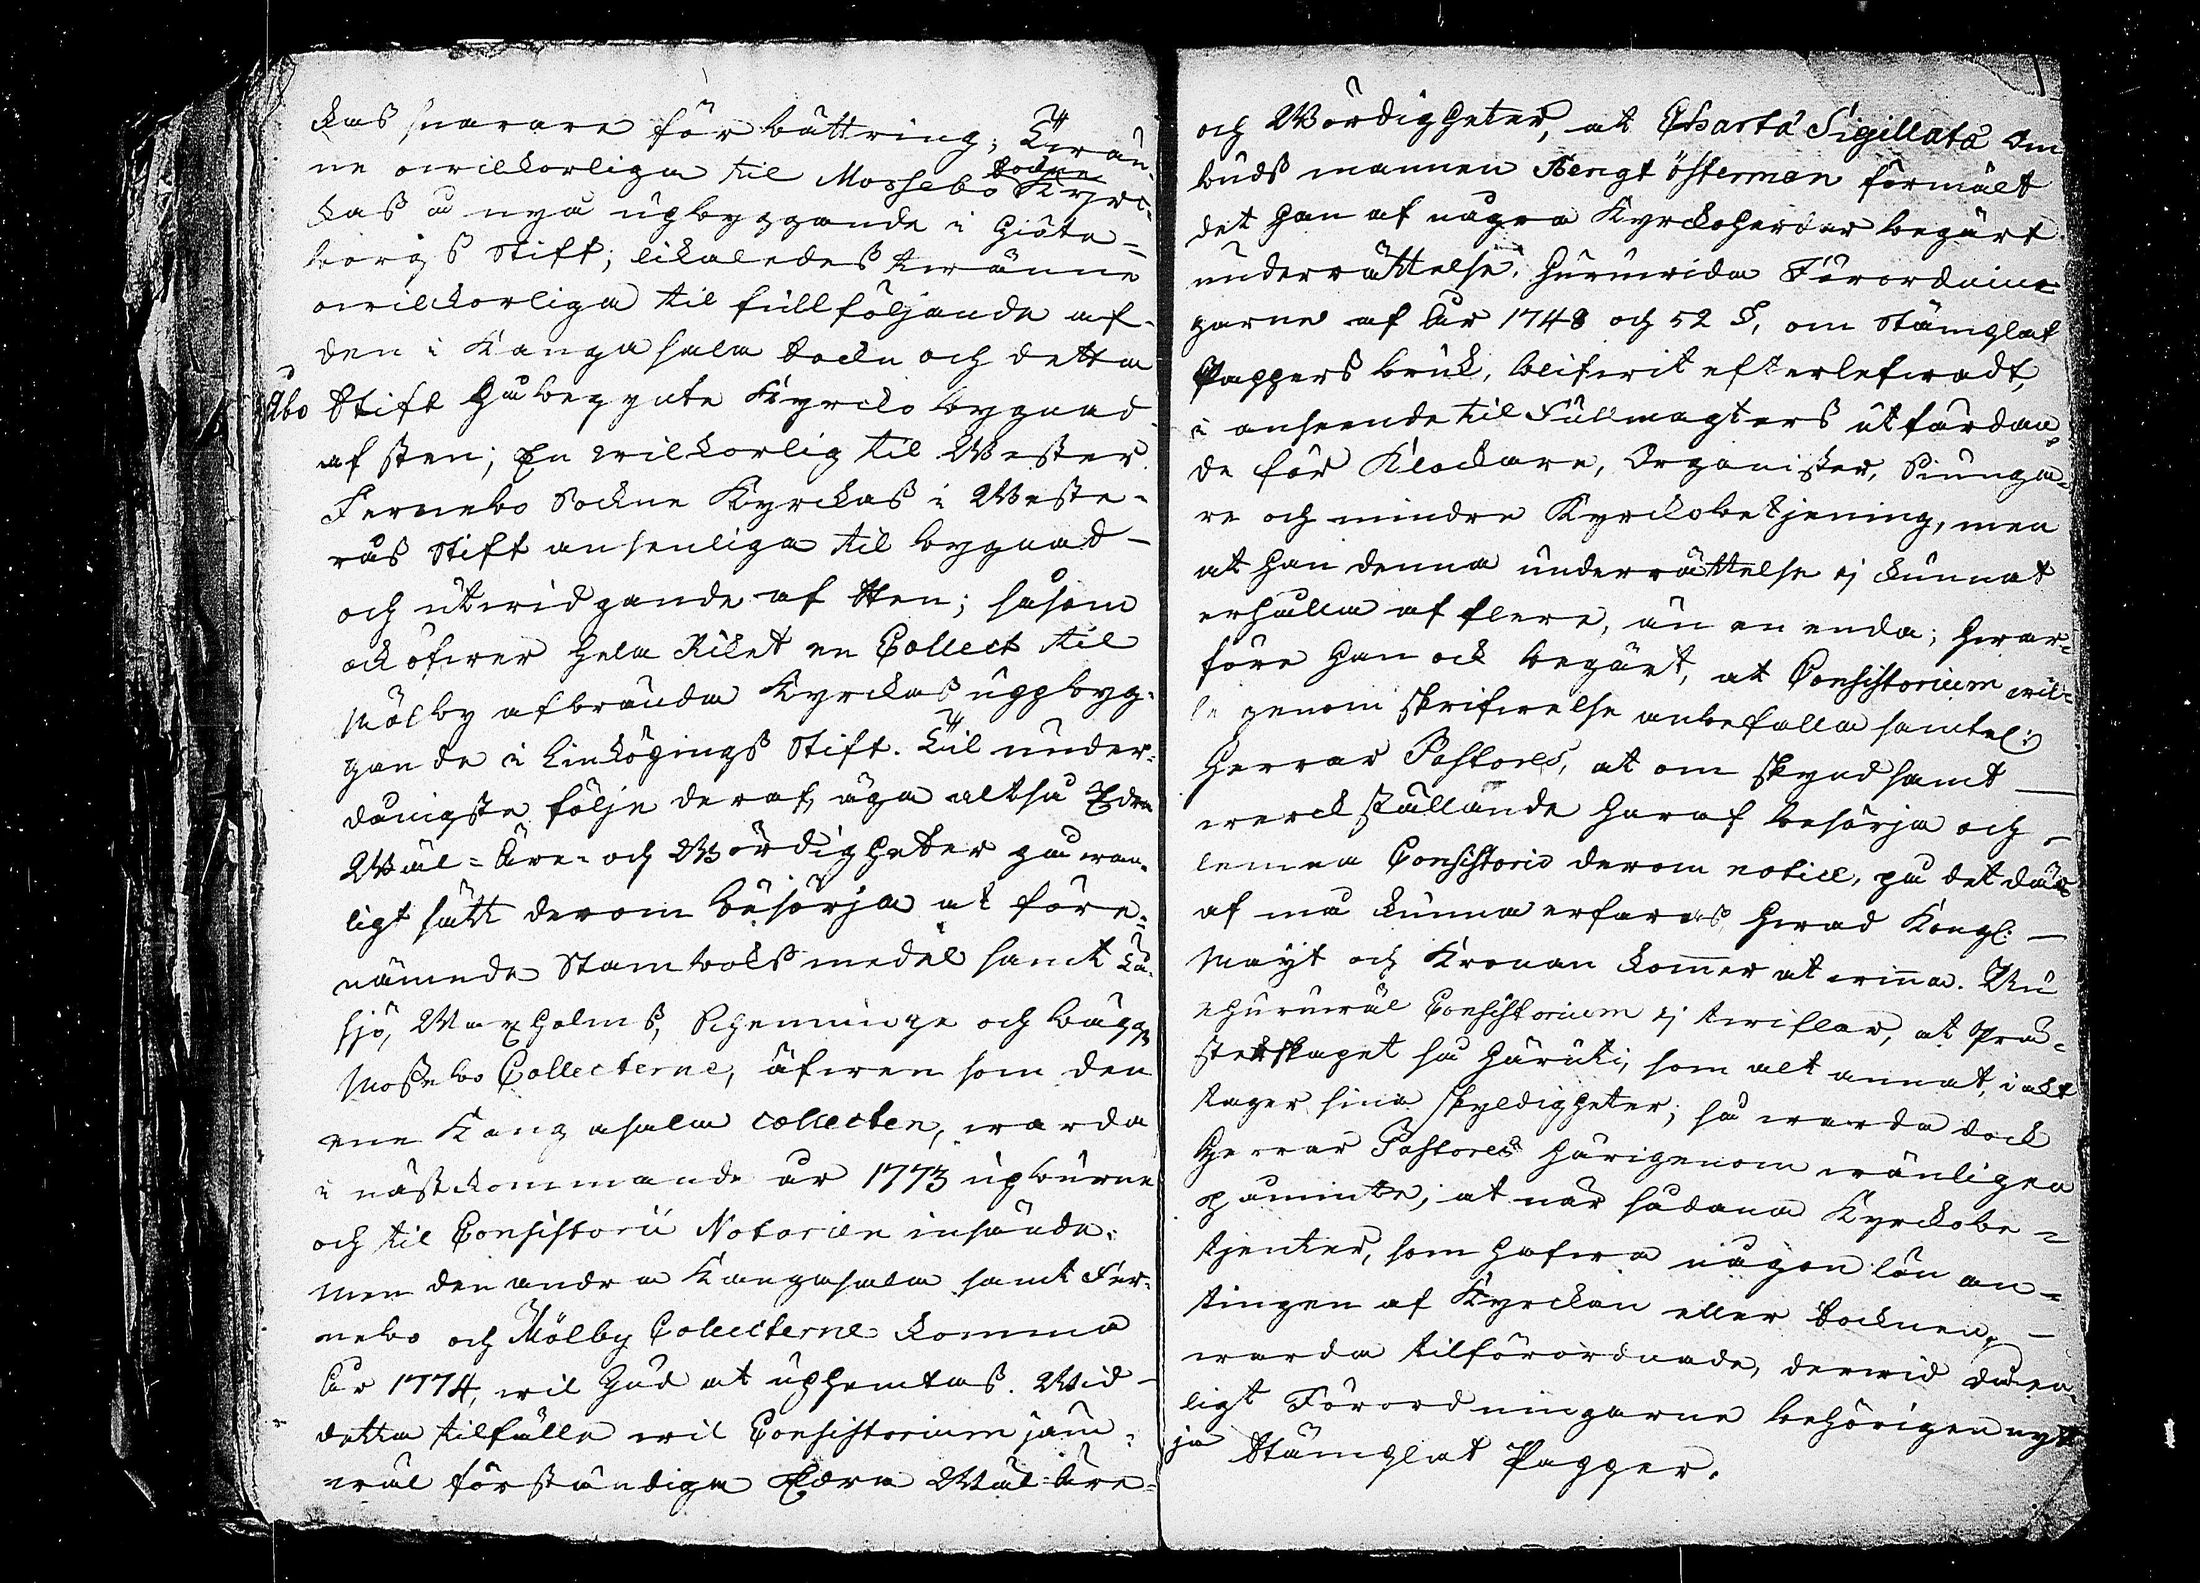 ckas snarare förbättring; Twän-
ne owilkorliga til Mossebo Sockne Kyrc-
kas å nya upbyggande i Giöte-
borgs Stift; likaledes twänne
owilckorliga til fullföljande af
den i Kangasala Sockn och detta
Åbo Stift påbegynte Kyrcko bygnad
af sten; En wilkorlig til Wester
Fernebo Sockne Kyrckas i Weste-
rås Stift ansenliga til bygnad
och utwidgande af sten; såsom
ock öfwer hela Riket en Collect til
Mölby afbrända Kyrckas uppbyg-
gande i Linköpings Stift. Til under-
dånigste följe deraf, äga altså Edra
Wäl-Äre- och Wördigheter på wan-
ligt sätt derom besörja at före-
nämnde Stamboks medel samt
sjö, Waxholms, Skenninge och bägge
Mossebo Collecterne, äfwen som den
ene Kangasala collecten, warda
i nästkommande år 1773 upburne
och til Consistorii Notarien insände.
Men den andra Kangasala samt Fer-
nebo och Mölby Collecterne komma
År 1774, wil Gud at uphemtas. Wid
detta tilfälle wil Consistorium jäm-
wäl förständiga Edra Wäl Äre-
och Wördigheter, at Charta Sigillata Om-
buds mannen Bengt Österman förmält
det han af någre Kyrckoherdar begärt
underrättelse, huruwida Förordnin-
garne af År 1748 och 52 §, om Stämplat
Pappers bruk, blifwit efterlefwadt,
i anseende til Fullmagters utfärdan-
de för Klockare, Organister, Spiögu-
re och mindre Kyrckobetjening, men
at han denna underrättelse ej kunnat
erhålla af flere, än en enda; hwar-
före han ock begärt, at Consistorium wil-
le genom skrifwelse anbefalla samtel:
Herrar Pastores, at om skyndsamt
werckställande haraf besörja och
lemna Consistorio derom notice, på det där
af må kunna erfaras, hwad Kongl:
Mayt och Kronan kommer at winna. Nu
ehuruwäl Consistorium ej twiflar, at Prä-
sterskapet så häruti, som alt annat, i akt
tager sina skyldigheter; så warda dock
Herrar Pastores härigenom wänligen
påminte, at när sådana Kyrckobe-
tjenter, som hafwa någon lön an-
tingen af Kyrckan eller Socknen,
warda tilförordnade, derwid då en-
ligt Förordningarne behörigen nytt-
ja Stämplat Papper.